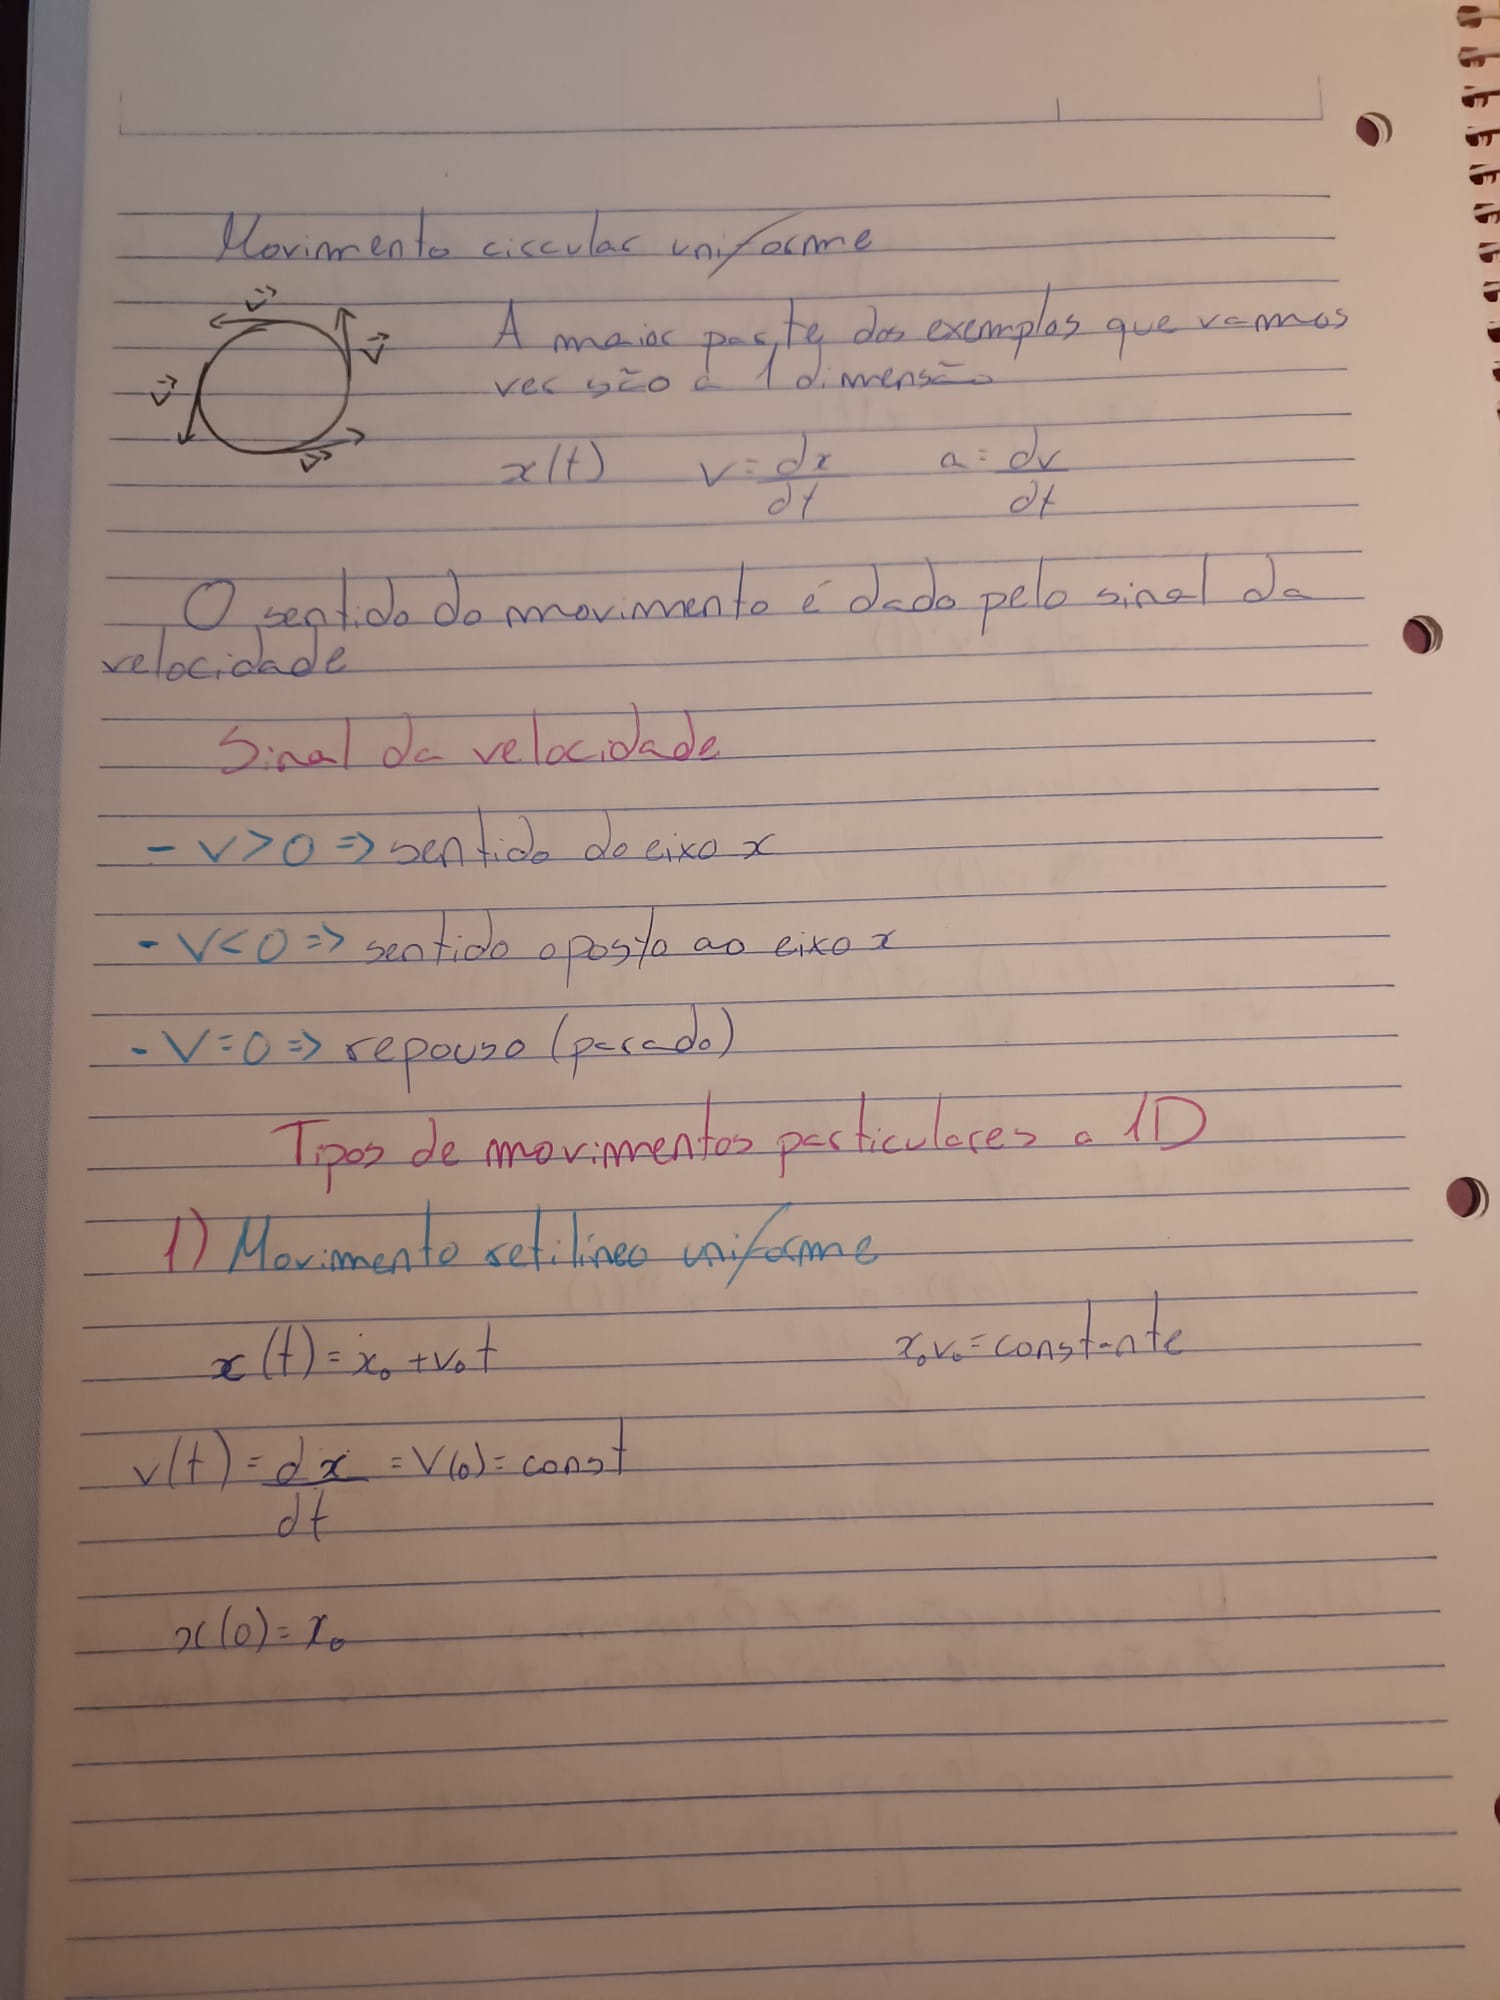 Movimento circular uniforme
v⃗
v⃗
v⃗
v⃗
A maior parte dos exemplos que vamos
ver são a 1 dimensão
x(t) v = dx/dt a = dv/dt
O sentido do movimento é dado pelo sinal da
velocidade
Sinal da velocidade
- v>0 => sentido do eixo x
- v<0 => sentido oposto ao eixo x
- v=0 => repouso (parado)
Tipos de movimentos particulares a 1D
1) Movimento retilíneo uniforme
x(t) = x₀ + v₀t x₀v₀ = constante
v(t) = dx/dt = v(0) = const
x(0) = x₀